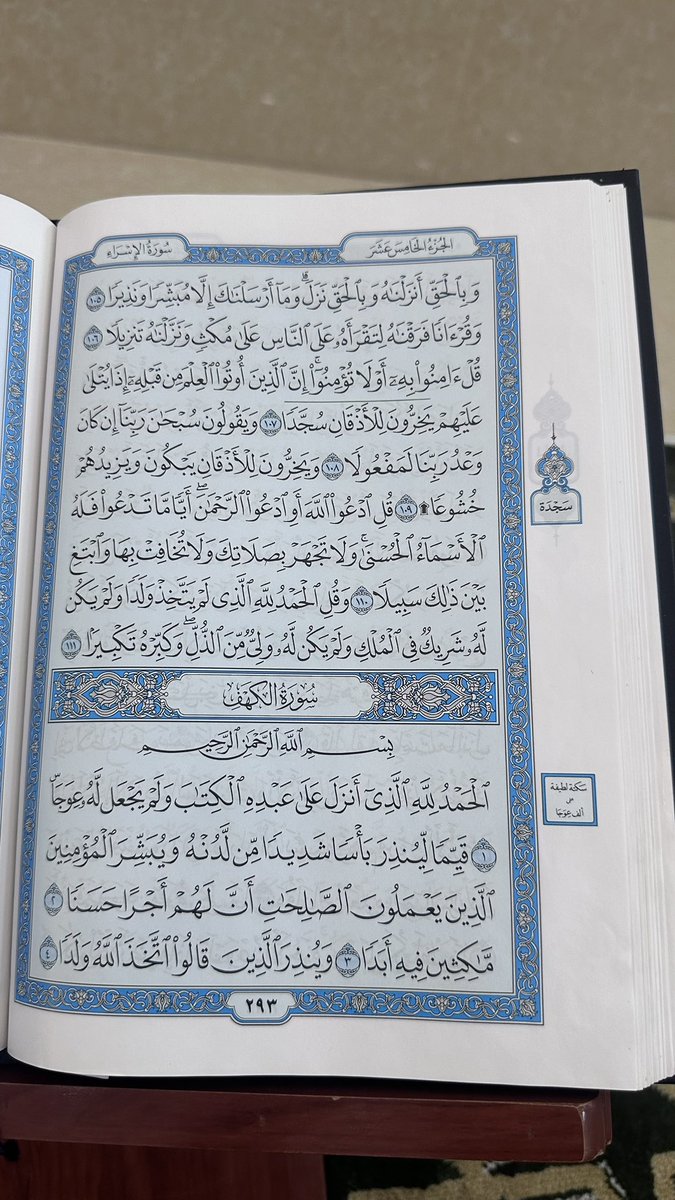 الجُزْءُ الخَامِسَ عَشَرَ
سُورَةُ الإِسْرَاءِ
وَبِٱلْحَقِّ أَنزَلْنَٰهُ وَبِٱلْحَقِّ نَزَلَۗ وَمَآ أَرْسَلْنَٰكَ إِلَّا مُبَشِّرًا وَنَذِيرًا ١٠٥
وَقُرْءَانًا فَرَقْنَٰهُ لِتَقْرَأَهُۥ عَلَى ٱلنَّاسِ عَلَىٰ مُكْثٍ وَنَزَّلْنَٰهُ تَنزِيلًا ١٠٦
قُلْ ءَامِنُوا۟ بِهِۦٓ أَوْ لَا تُؤْمِنُوٓا۟ۚ إِنَّ ٱلَّذِينَ أُوتُوا۟ ٱلْعِلْمَ مِن قَبْلِهِۦٓ إِذَا يُتْلَىٰ
عَلَيْهِمْ يَخِرُّونَ لِلْأَذْقَانِ سُجَّدًا ١٠٧ وَيَقُولُونَ سُبْحَٰنَ رَبِّنَآ إِن كَانَ
وَعْدُ رَبِّنَا لَمَفْعُولًا ١٠٨ وَيَخِرُّونَ لِلْأَذْقَانِ يَبْكُونَ وَيَزِيدُهُمْ
خُشُوعًا۩ ١٠٩ قُلِ ٱدْعُوا۟ ٱللَّهَ أَوِ ٱدْعُوا۟ ٱلرَّحْمَٰنَۖ أَيًّا مَّا تَدْعُوا۟ فَلَهُ
ٱلْأَسْمَآءُ ٱلْحُسْنَىٰۚ وَلَا تَجْهَرْ بِصَلَاتِكَ وَلَا تُخَافِتْ بِهَا وَٱبْتَغِ
بَيْنَ ذَٰلِكَ سَبِيلًا ١١٠ وَقُلِ ٱلْحَمْدُ لِلَّهِ ٱلَّذِى لَمْ يَتَّخِذْ وَلَدًا وَلَمْ يَكُن
لَّهُۥ شَرِيكٌ فِى ٱلْمُلْكِ وَلَمْ يَكُن لَّهُۥ وَلِىٌّ مِّنَ ٱلذُّلِّۖ وَكَبِّرْهُ تَكْبِيرًۢا ١١١
سَجْدَة
سُورَةُ الكَهْفِ
بِسْمِ ٱللَّهِ ٱلرَّحْمَٰنِ ٱلرَّحِيمِ
ٱلْحَمْدُ لِلَّهِ ٱلَّذِىٓ أَنزَلَ عَلَىٰ عَبْدِهِ ٱلْكِتَٰبَ وَلَمْ يَجْعَل لَّهُۥ عِوَجَاۜ
١ قَيِّمًا لِّيُنذِرَ بَأْسًا شَدِيدًا مِّن لَّدُنْهُ وَيُبَشِّرَ ٱلْمُؤْمِنِينَ
ٱلَّذِينَ يَعْمَلُونَ ٱلصَّٰلِحَٰتِ أَنَّ لَهُمْ أَجْرًا حَسَنًا ٢
مَّٰكِثِينَ فِيهِ أَبَدًا ٣ وَيُنذِرَ ٱلَّذِينَ قَالُوا۟ ٱتَّخَذَ ٱللَّهُ وَلَدًا ٤
سكتة لطيفة
على
ألف عِوَجَا
٢٩٣